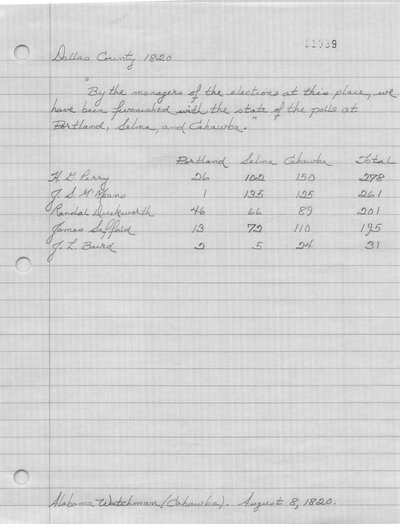 11939
Dallas County 1820
"By the managers of the elections at this place, we
have been furnished with the state of the polls at
Portland, Selma, and Cahawba."
Portland Selma Cahawba Total
H. G. Perry 26 102 150 278
J. S. McMeans 1 135 125 261
Randal Duckworth 46 66 89 201
James Saffold 13 72 110 195
J. L. Burd 2 5 24 31
Alabama Watchman (Cahawba). August 8, 1820.